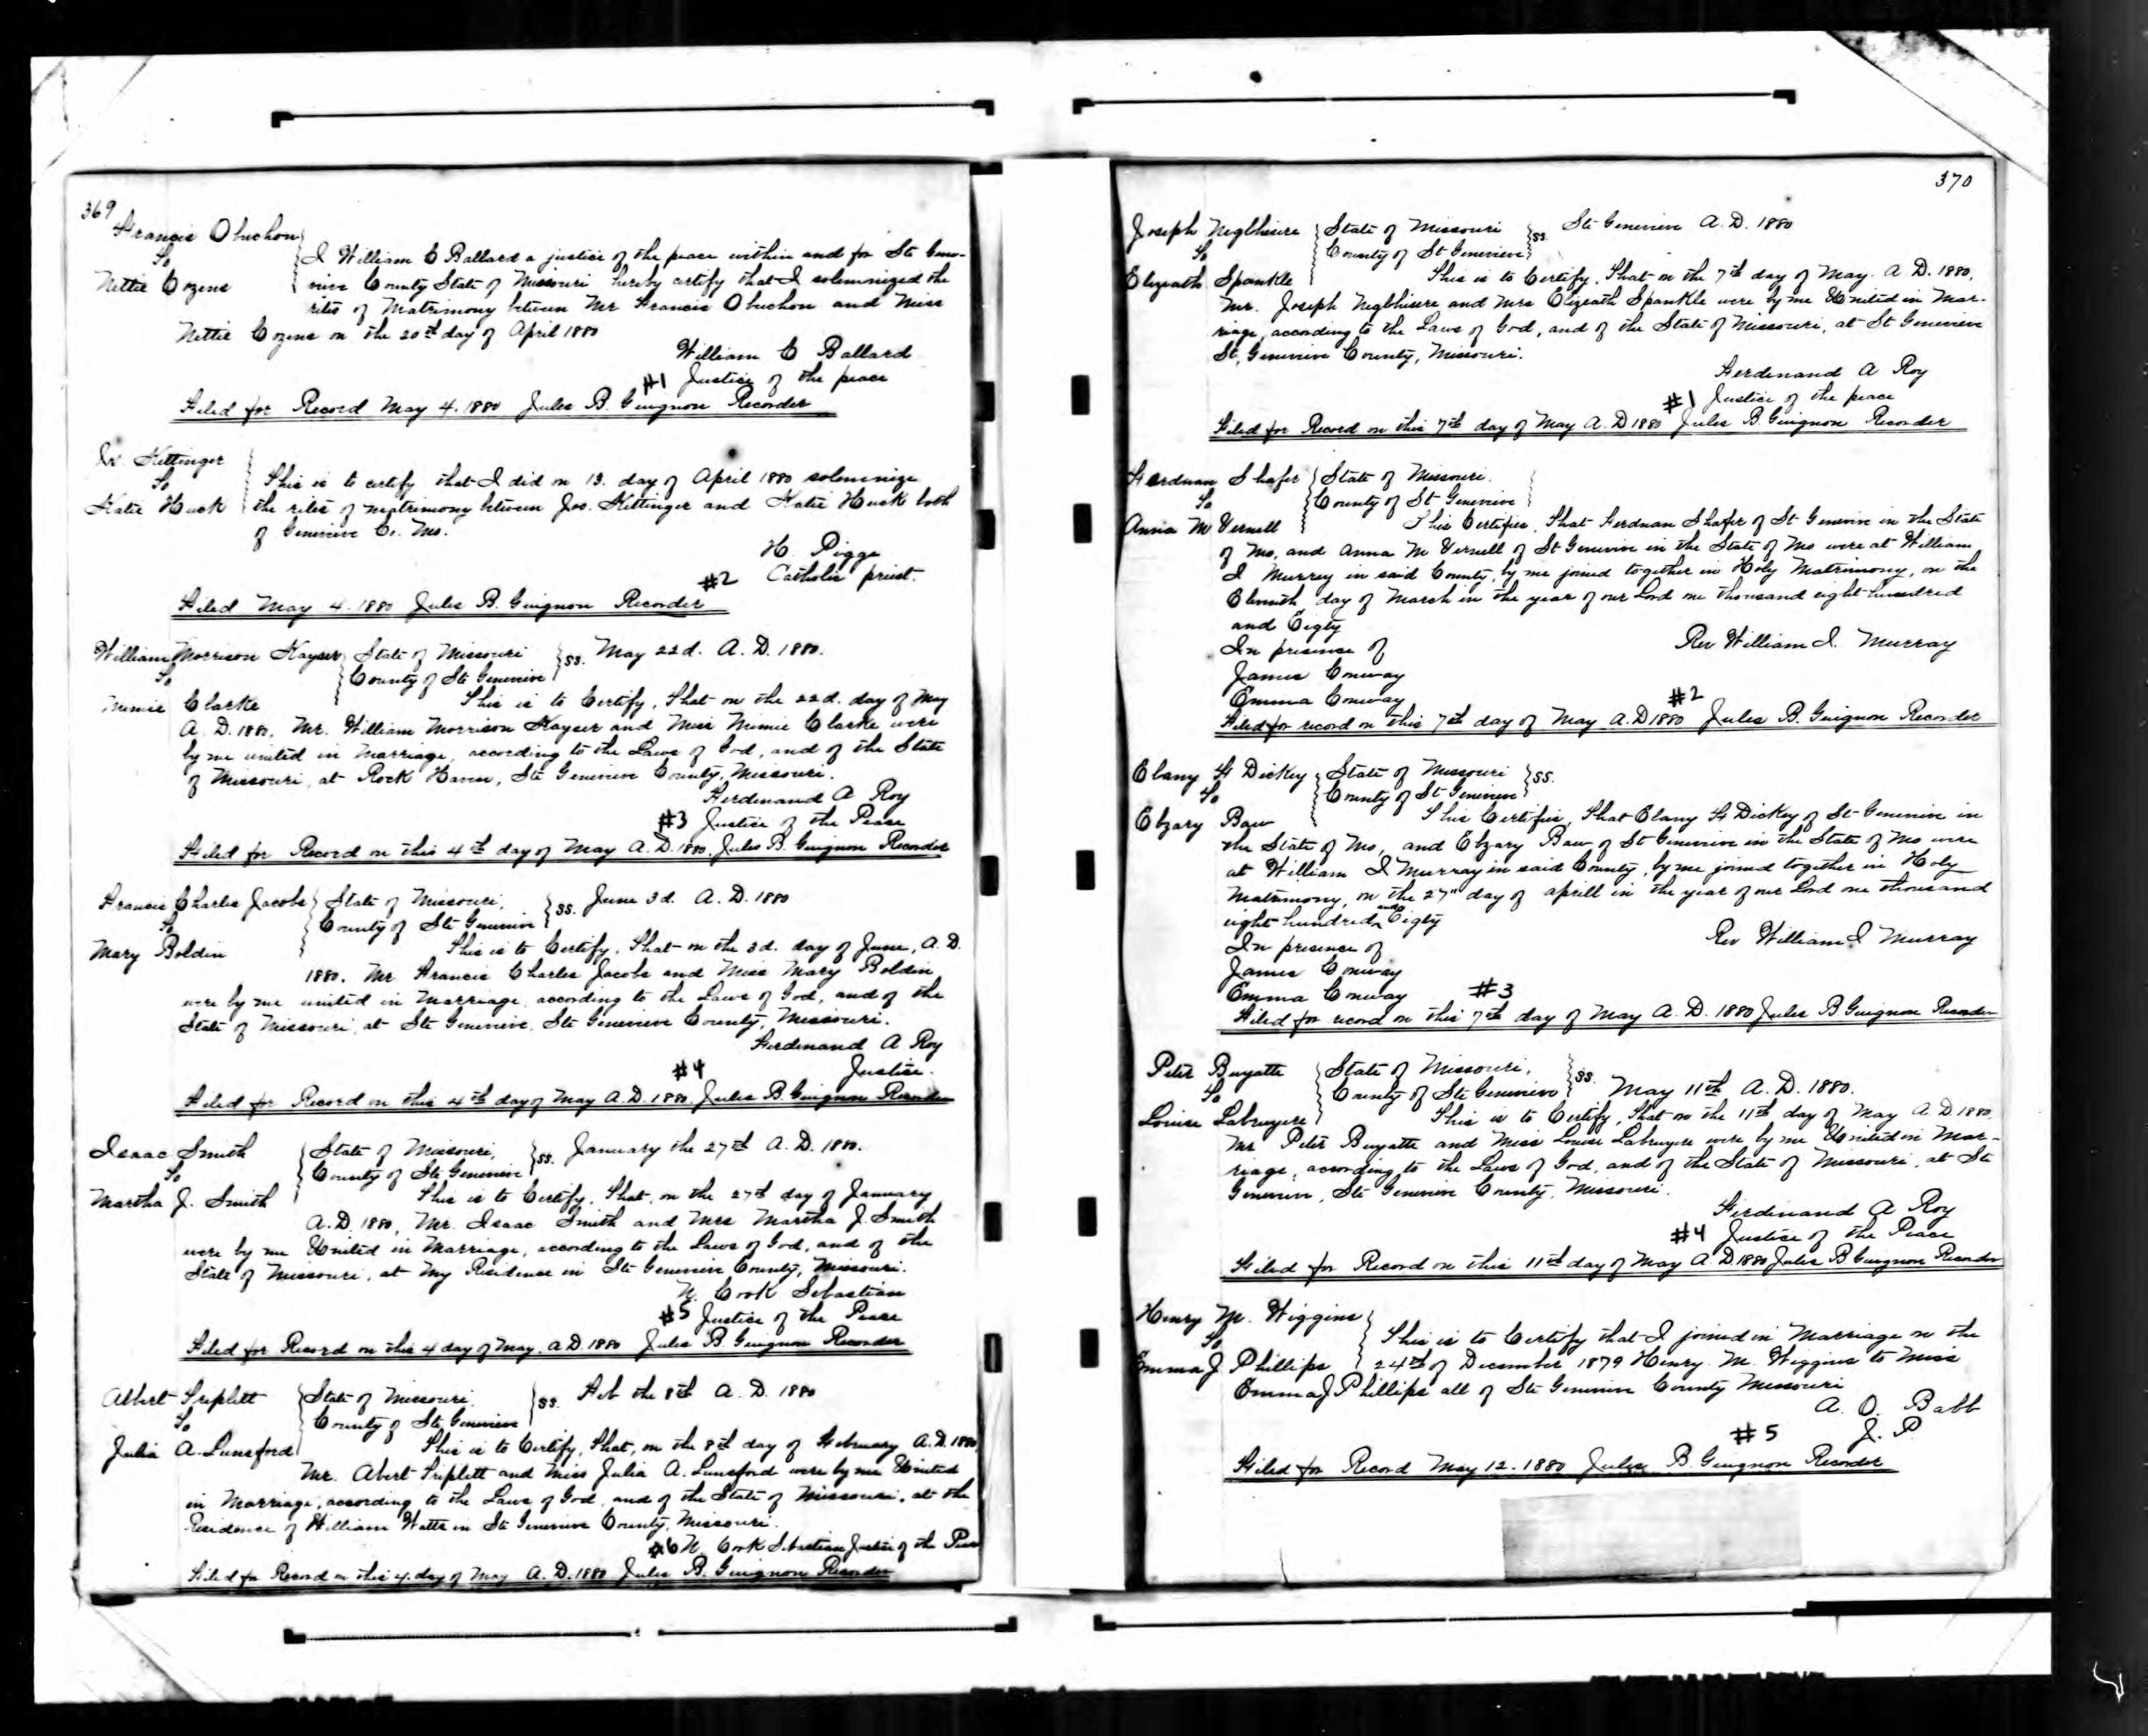 369
Francis Obuchon
To
Nettie Cozens
I William C Ballard a justice of the peace within and for Ste Gene-
vieve County State of Missouri hereby certify that I solemnized the
rites of Matrimony between Mr Francis Obuchon and Miss
Nettie Cozens on the 20th day of April 1880
William C Ballard
#1 Justice of the peace
Filed for Record May 4. 1880 Jules B. Guignon Recorder
Jos Kettinger
To
Katie Huck
This is to certify that I did on 13. day of April 1880 solemnize
the rites of matrimony between Jos. Kettinger and Katie Huck both
of Genevieve Co. Mo.
H. Pigge
#2 Catholic priest.
Filed May 4. 1880 Jules B. Guignon Recorder
William Morrison Kayser
To
Mimie Clarke
State of Missouri
County of Ste Genevieve
ss. May 22d. A. D. 1880.
This is to Certify, That on the 22d. day of May
A. D. 1880, Mr. William Morrison Kayser and Miss Mimie Clarke were
by me united in Marriage, according to the Laws of God, and of the State
of Missouri, at Rock Haven, Ste Genevieve County, Missouri.
Ferdinand A Roy
#3 Justice of the Peace
Filed for Record on this 4th day of May A. D. 1880. Jules B. Guignon Recorder
Francis Charles Jacobs
To
Mary Boldin
State of Missouri,
County of Ste Genevieve
ss. June 3d. A. D. 1880
This is to Certify, That on the 3d. day of June, A. D.
1880. Mr Francis Charles Jacobs and Miss Mary Boldin
were by me united in Marriage, according to the Laws of God, and of the
State of Missouri, at Ste Genevieve, Ste Genevieve County, Missouri.
Ferdinand A Roy
#4 Justice.
Filed for Record on this 4th day of May A. D. 1880. Jules B Guignon Recorder
Isaac Smith
To
Martha J. Smith
State of Missouri,
County of Ste Genevieve
ss. January the 27th A. D. 1880.
This is to Certify, That, on the 27th day of January
A. D. 1880, Mr. Isaac Smith and Mrs Martha J. Smith
were by me United in Marriage, according to the Laws of God, and of the
State of Missouri, at My Residence in Ste Genevieve County, Missouri.
N. Cook Sebastian
#5 Justice of the Peace
Filed for Record on this 4 day of May. A D. 1880 Jules B. Guignon Recorder
Albert Triplett
To
Julia A. Lunsford
State of Missouri,
County of Ste Genevieve
ss. Feb the 8th A. D. 1880
This is to Certify, That, on the 8th day of February A. D. 1880
Mr. Abert Triplett and Miss Julia A. Lunsford were by me United
in Marriage, according to the Laws of God, and of the State of Missouri, at the
Residence of William Watts in Ste Genevieve County, Missouri.
#6 N. Cook Sebastian Justice of the Peace
Filed for Record on this 4. day of May A. D. 1880 Jules B. Guignon Recorder
370
Joseph Neglhisere
To
Elizeath Spankle
State of Missouri
County of St Genevieve
ss. Ste Genevieve A. D. 1880
This is to Certify, That on the 7th day of May. A. D. 1880,
Mr. Joseph Neglhisere and Mrs Elizeath Spankle were by me United in Mar-
riage, according to the Laws of God, and of the State of Missouri, at St Genevieve
St, Genevieve County, Missouri.
Ferdinand A Roy
#1 Justice of the peace
Filed for Record on this 7th day of May A. D 1880 Jules B. Guignon Recorder
Ferdnan Shafer
To
Anna M Vernell
State of Missouri.
County of St Genevieve
This Certifies, That Ferdnan Shafer of St Genevieve in the State
of Mo, and Anna M Vernell of St Genevieve in the State of Mo were at William
I Murrey in said County, by me joined together in Holy Matrimony, on the
Eleventh day of March in the year of our Lord one thousand eight hundred
and Eigty
In presence of
Rev William I. Murray
James Conway
Emma Conway
#2
Filed for record on this 7th day of May A. D 1880 Jules B. Guignon Recorder
Elany F Dickey
To
Elzary Baw
State of Missouri
County of St Genevieve
ss.
This Certifies, That Elany F Dickey of St Genevieve in
the State of Mo, and Elzary Baw of St Genevieve in the State of Mo were
at William I Murray in said County, by me joined together in Holy
Matrimony, on the 27" day of aprill in the year of our Lord one thousand
eight hundred and Eigty
In presence of
Rev William I Murray
James Conway
Emma Conway #3
Filed for record on this 7th day of May A. D. 1880 Jules B Guignon Recorder
Peter Buyatte
To
Louise Labruyere
State of Missouri,
County of Ste Genevieve
ss. May 11th A. D. 1880.
This is to Certify, That on the 11th day of May A. D 1880
Mr Peter Buyatte and Miss Louise Labruyere were by me United in Mar-
riage, according to the Laws of God, and of the State of Missouri, at Ste
Genevieve, Ste Genevieve County, Missouri.
Ferdinand A Roy
#4 Justice of the Peace
Filed for Record on this 11th day of May A. D. 1880 Jules B Guignon Recorder
Henry M. Wiggins
To
Emma J Phillips
This is to Certify that I joined in Marriage on the
24th of December 1879 Henry. M. Wiggins to Miss
Emma J Phillips all of Ste Genevieve County Missouri
A. O. Babb
#5 J. P
Filed for Record May 12. 1880 Jules B. Guignon Recorder